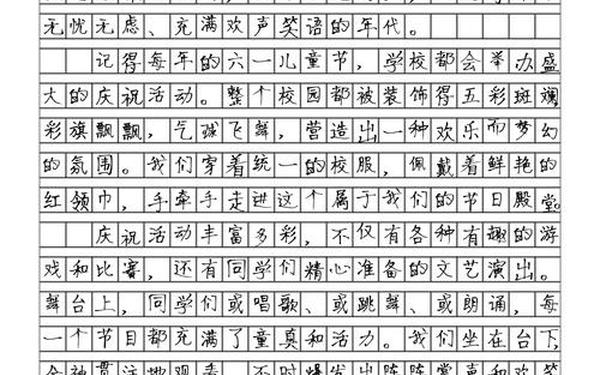 无忧无虑、充满欢声笑语的年代。
记得每年的六一儿童节，学校都会举办盛
大的庆祝活动。整个校园都被装饰得五彩斑斓
彩旗飘飘，气球飞舞，营造出一种欢乐而梦幻
的氛围。我们穿着统一的校服，佩戴着鲜艳的
红领巾，手牵手走进这个属于我们的节日殿堂。
庆祝活动丰富多彩，不仅有各种有趣的游
戏和比赛，还有同学们精心准备的文艺演出。
舞台上，同学们或唱歌、或跳舞、或朗诵，每
一个节目都充满了童真和活力。我们坐在台下，
全神贯注地观看，不时爆发出阵阵掌声和欢笑